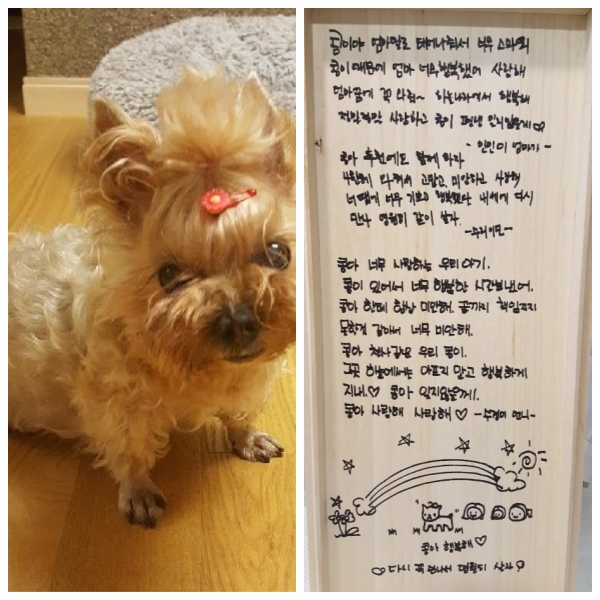 콩이야 엄마딸로 태어나줘서 너무
콩이 때문에 엄마 너무 행복했어 사랑해
엄마꿈에 꼭 와줘~ 하늘나라에서 행복해
사랑하고 콩이 평생 안잊을게♡
엄마가-
콩아 추천에도 함께 하자
사랑해 고맙고 미안하고 사랑해
너땜에 너무 기쁘고 행복했다 내세에 다시
만나 영원히 같이 살자.
콩아 너무 사랑하는 우리아가.
콩이 있어서 너무 행복한 시간보냈어.
콩아 한테 항상 미안해. 끝까지 책임지지
못한것 같아서 너무 미안해.
콩아 우리 콩이.
그곳 하늘에서는 아프지 말고 행복하게
지내♡ 콩아 잊지않을게.
콩아 사랑해 사랑해♡ 언니-
콩아 행복해♡
♡다시 꼭 만나서 영원히 살자♡